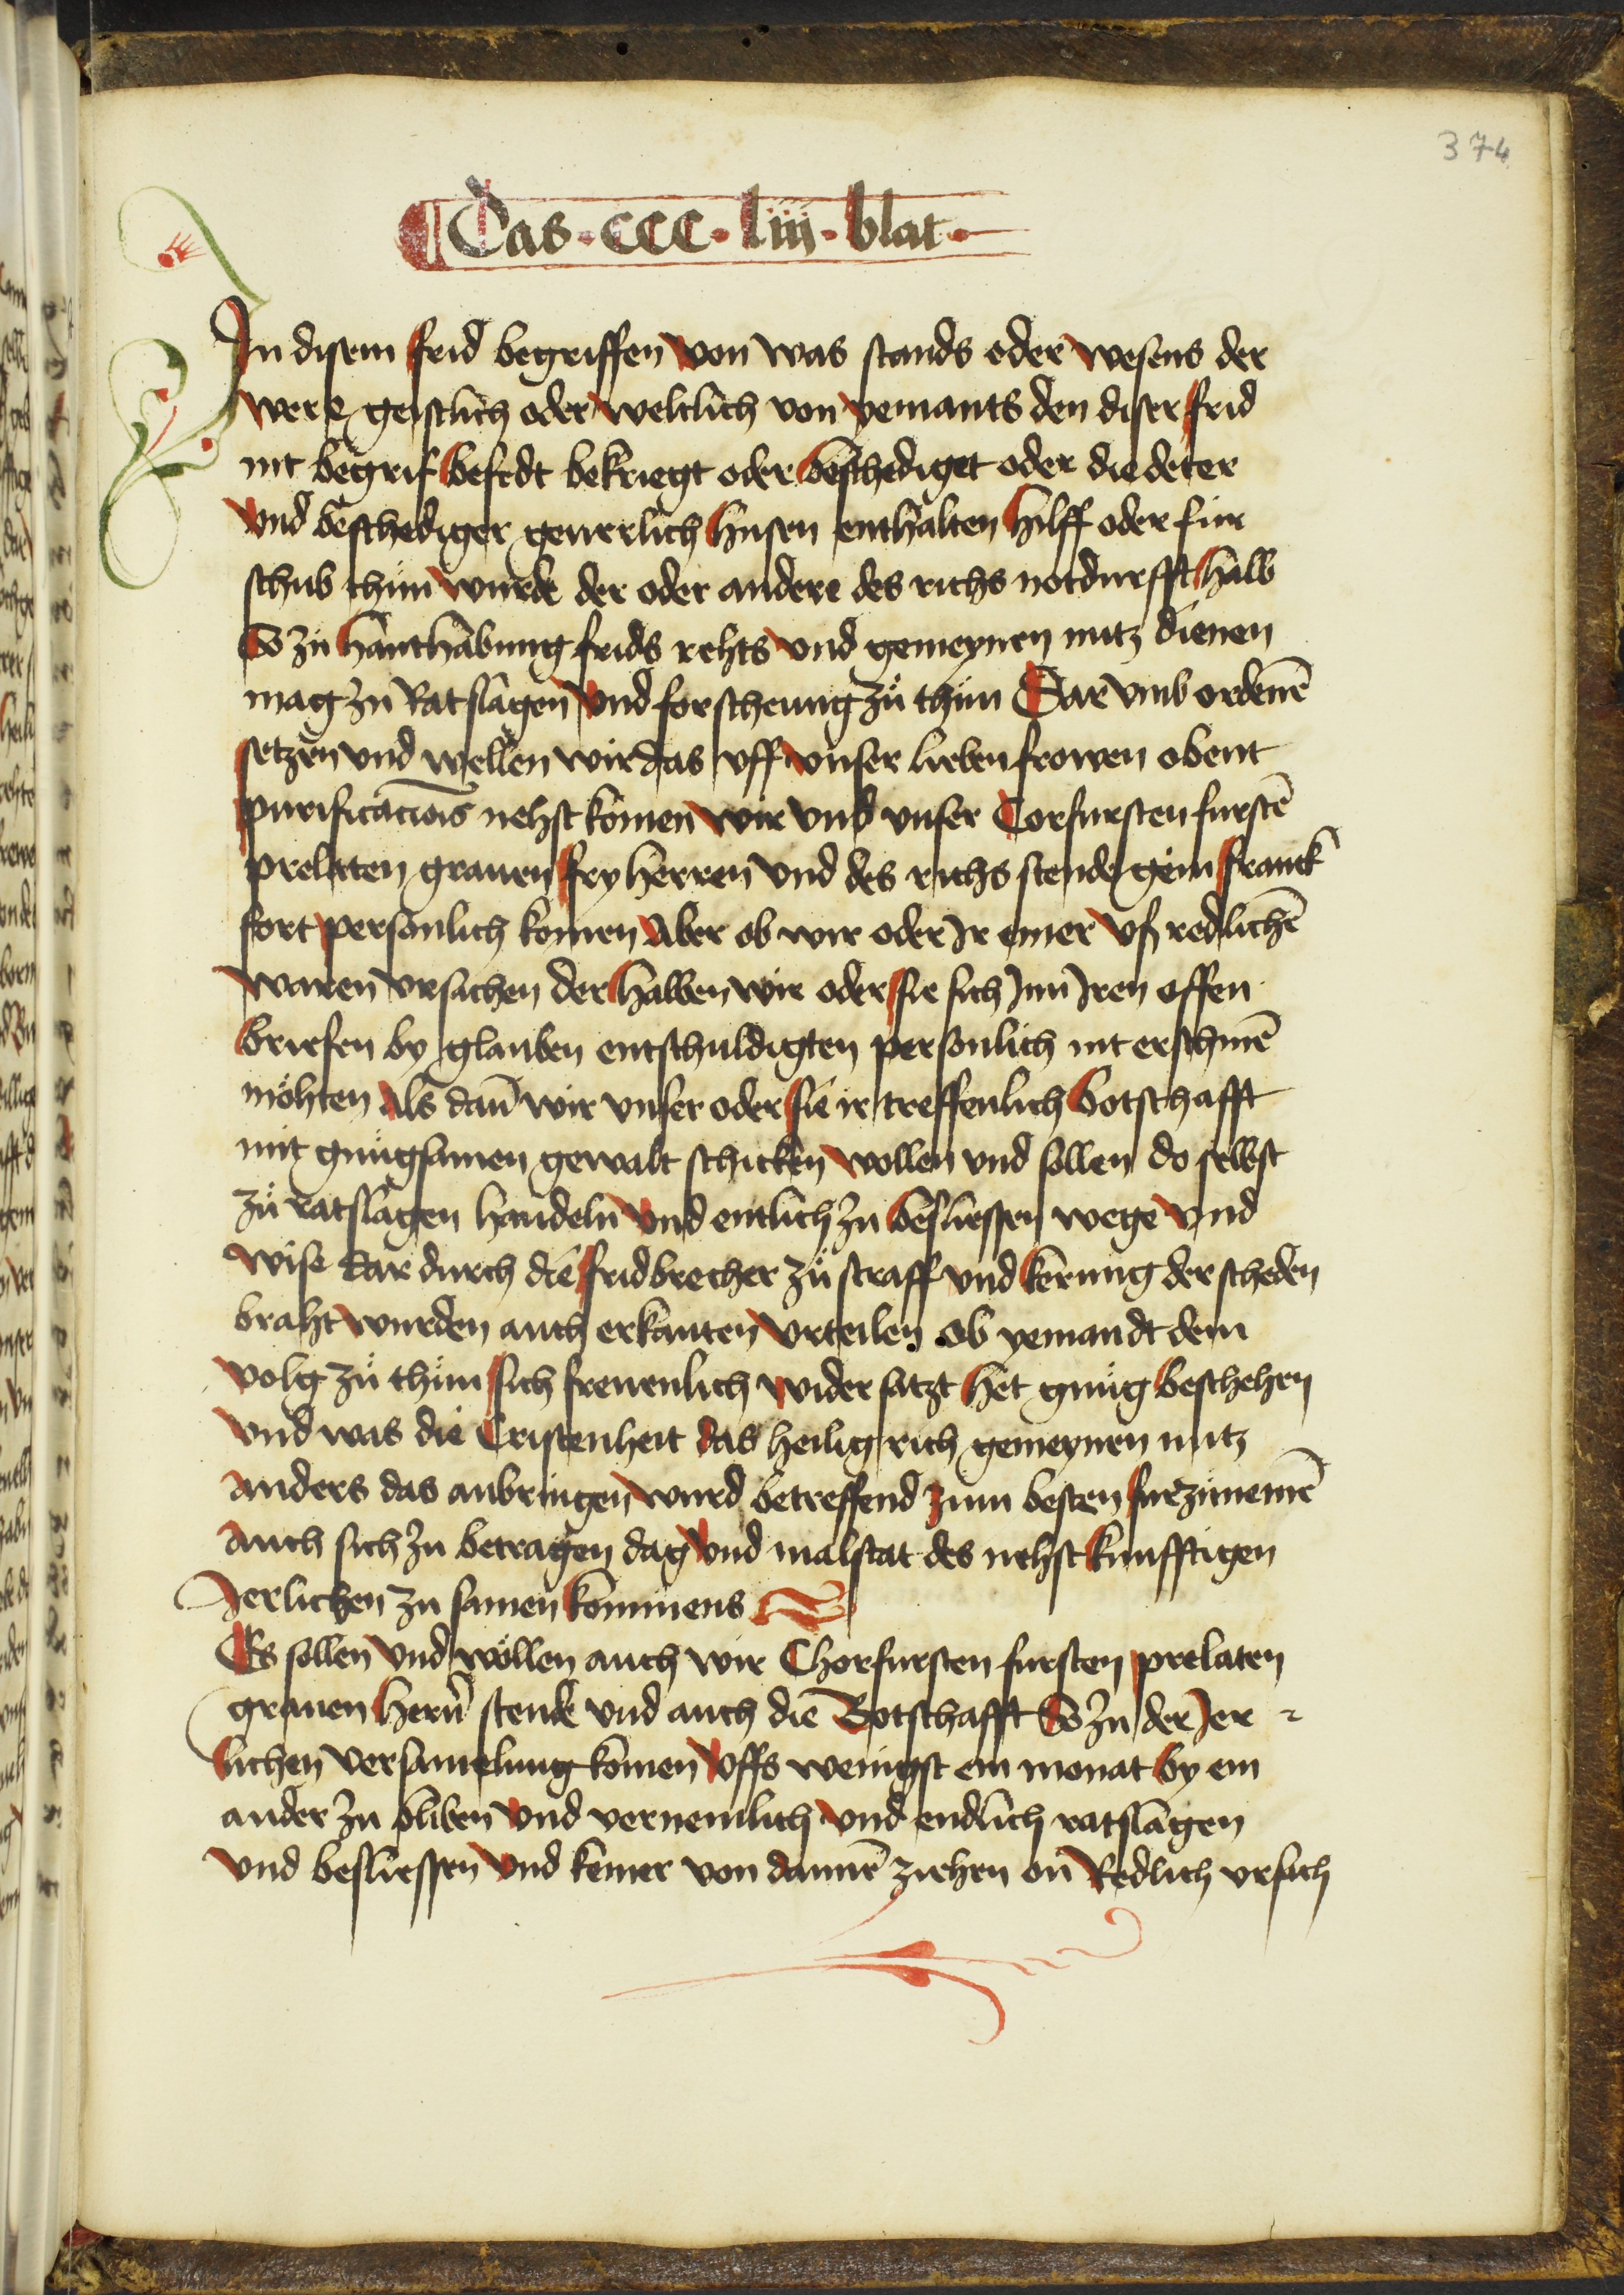 374
¶ Das · CCC · liiij · blat ·
In disem frid begriffen von was stands oder wesens der
were geistlich oder weltlich von yemants den diser frid
nit begrif befedt bekriegt oder beschediget oder die deter
vnd beschediger geuerlich husen enthalten hilff oder fur
schub thün wurde der oder andere des richs notdurfft halb
So zu hanthabung frids rehts vnd gemeynen nutz dienen
mag zu Ratslagen vnd forscheung zü thün Dar vmb ordenē
setzen vnd wellen wir das vff vnser lieben frowen obent
purificacionis nehst komen wir vnd vnser Corfursten furstē
prelaten grauen fry herren vnd des richs stende gein franck
fort personlich komen Aber ob wir oder Ir einer vß redlichē
waren vrsachen der halben wir oder sie sich Inn Iren offen
briefen by glauben entschuldigten personlich nit erschinē
möhten Als dañ wir vnser oder sie ir treffenlich botschafft
mit gnügsamen gewalt schicken wollen vnd sollen do selbst
zü ratslagen handeln vnd entlich zu besliessen wege vnd
wise dar durch die fridbrecher zü straff vnd kerung der scheden
braht wurden auch erkanten vrteilen ob yemandt dem
volg zü thün sich freuenlich wider satzt het gnüg beschehen
vnd was die Cristenheit das heilig rich gemeynen nutz
anders das anbringen wurd betreffend zum besten furzunemē
auch sich zu betragen dag vnd malstat des nehst kunfftigen
Ierlichen zu samen kommens
Es sollen vnd wöllen auch wir Chorfursten fursten prelaten
grauen herñ stende vnd auch die Botschafft So zu der Ier
lichen versamelung komen vffs wenigst ein monat by ein
ander zu bliben vnd vernemlich vnd endlich ratslagen
vnd besliessen vnd keiner von dannē ziehen on Redlich vrsach